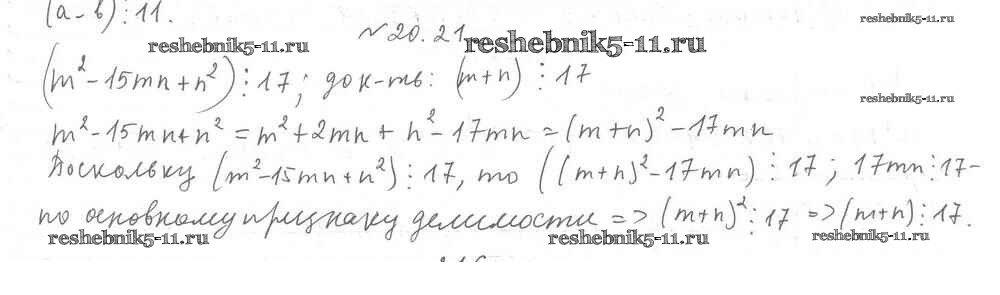 (a-b)⋮11.
reshebnik5-11.ru
№20.21
reshebnik5-11.ru
reshebnik5-11.ru
(m²-15mn+n²)⋮17; док-ть: (m+n)⋮17
reshebnik5-11.ru
m²-15mn+n²=m²+2mn+n²-17mn=(m+n)²-17mn
Поскольку (m²-15mn+n²)⋮17, то ((m+n)²-17mn)⋮17; 17mn⋮17-
по основному признаку делимости => (m+n)²⋮17 => (m+n)⋮17.
reshebnik5-11.ru
reshebnik5-11.ru
reshebnik5-11.ru